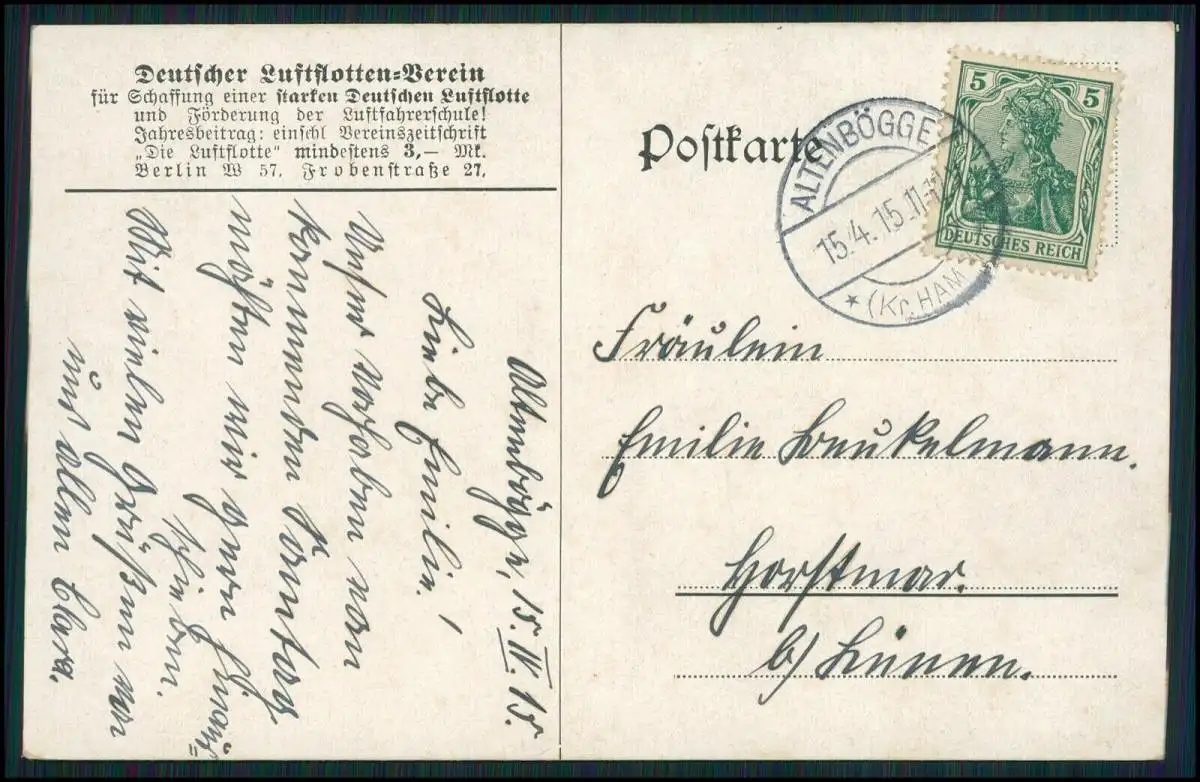 Deutscher Luftflotten=Verein
für Schaffung einer starken Deutschen Luftflotte
und Förderung der Luftfahrerschule!
Jahresbeitrag: einschl Vereinszeitschrift
„Die Luftflotte" mindestens 3,— Mk.
Berlin W 57, Frobenstraße 27,
Altenbögge, 15. IV. 15.
Liebe Emilie!
Unser vorhaben von
kommenden Sonntag
möchten wir gern hinaus=
schieben.
Mit vielen Grüßen von
uns allen Clara.
Postkarte
ALTENBÖGGE
15.4.15.11-12
* (Kr. HAM
5 5
DEUTSCHES REICH
Fräulein
Emilie Beukelmann.
Horstmar.
b/ Lünen.